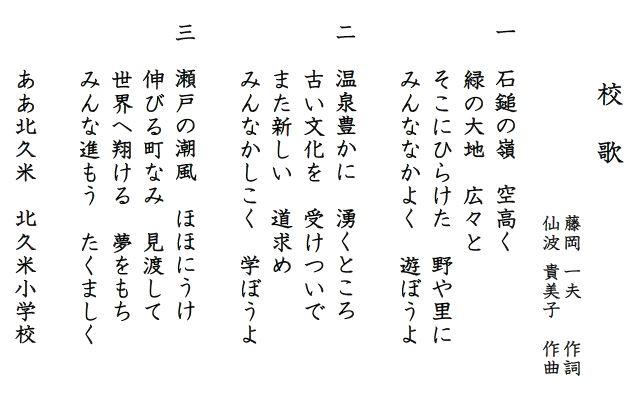 校歌
藤岡 一夫 作詞
仙波 貴美子 作曲
一 石鎚の嶺 空高く
緑の大地 広々と
そこにひらけた 野や里に
みんななかよく 遊ぼうよ
二 温泉豊かに 湧くところ
古い文化を 受けついで
また新しい 道求め
みんなかしこく 学ぼうよ
三 瀬戸の潮風 ほほにうけ
伸びる町なみ 見渡して
世界へ翔ける 夢をもち
みんな進もう たくましく
ああ北久米 北久米小学校